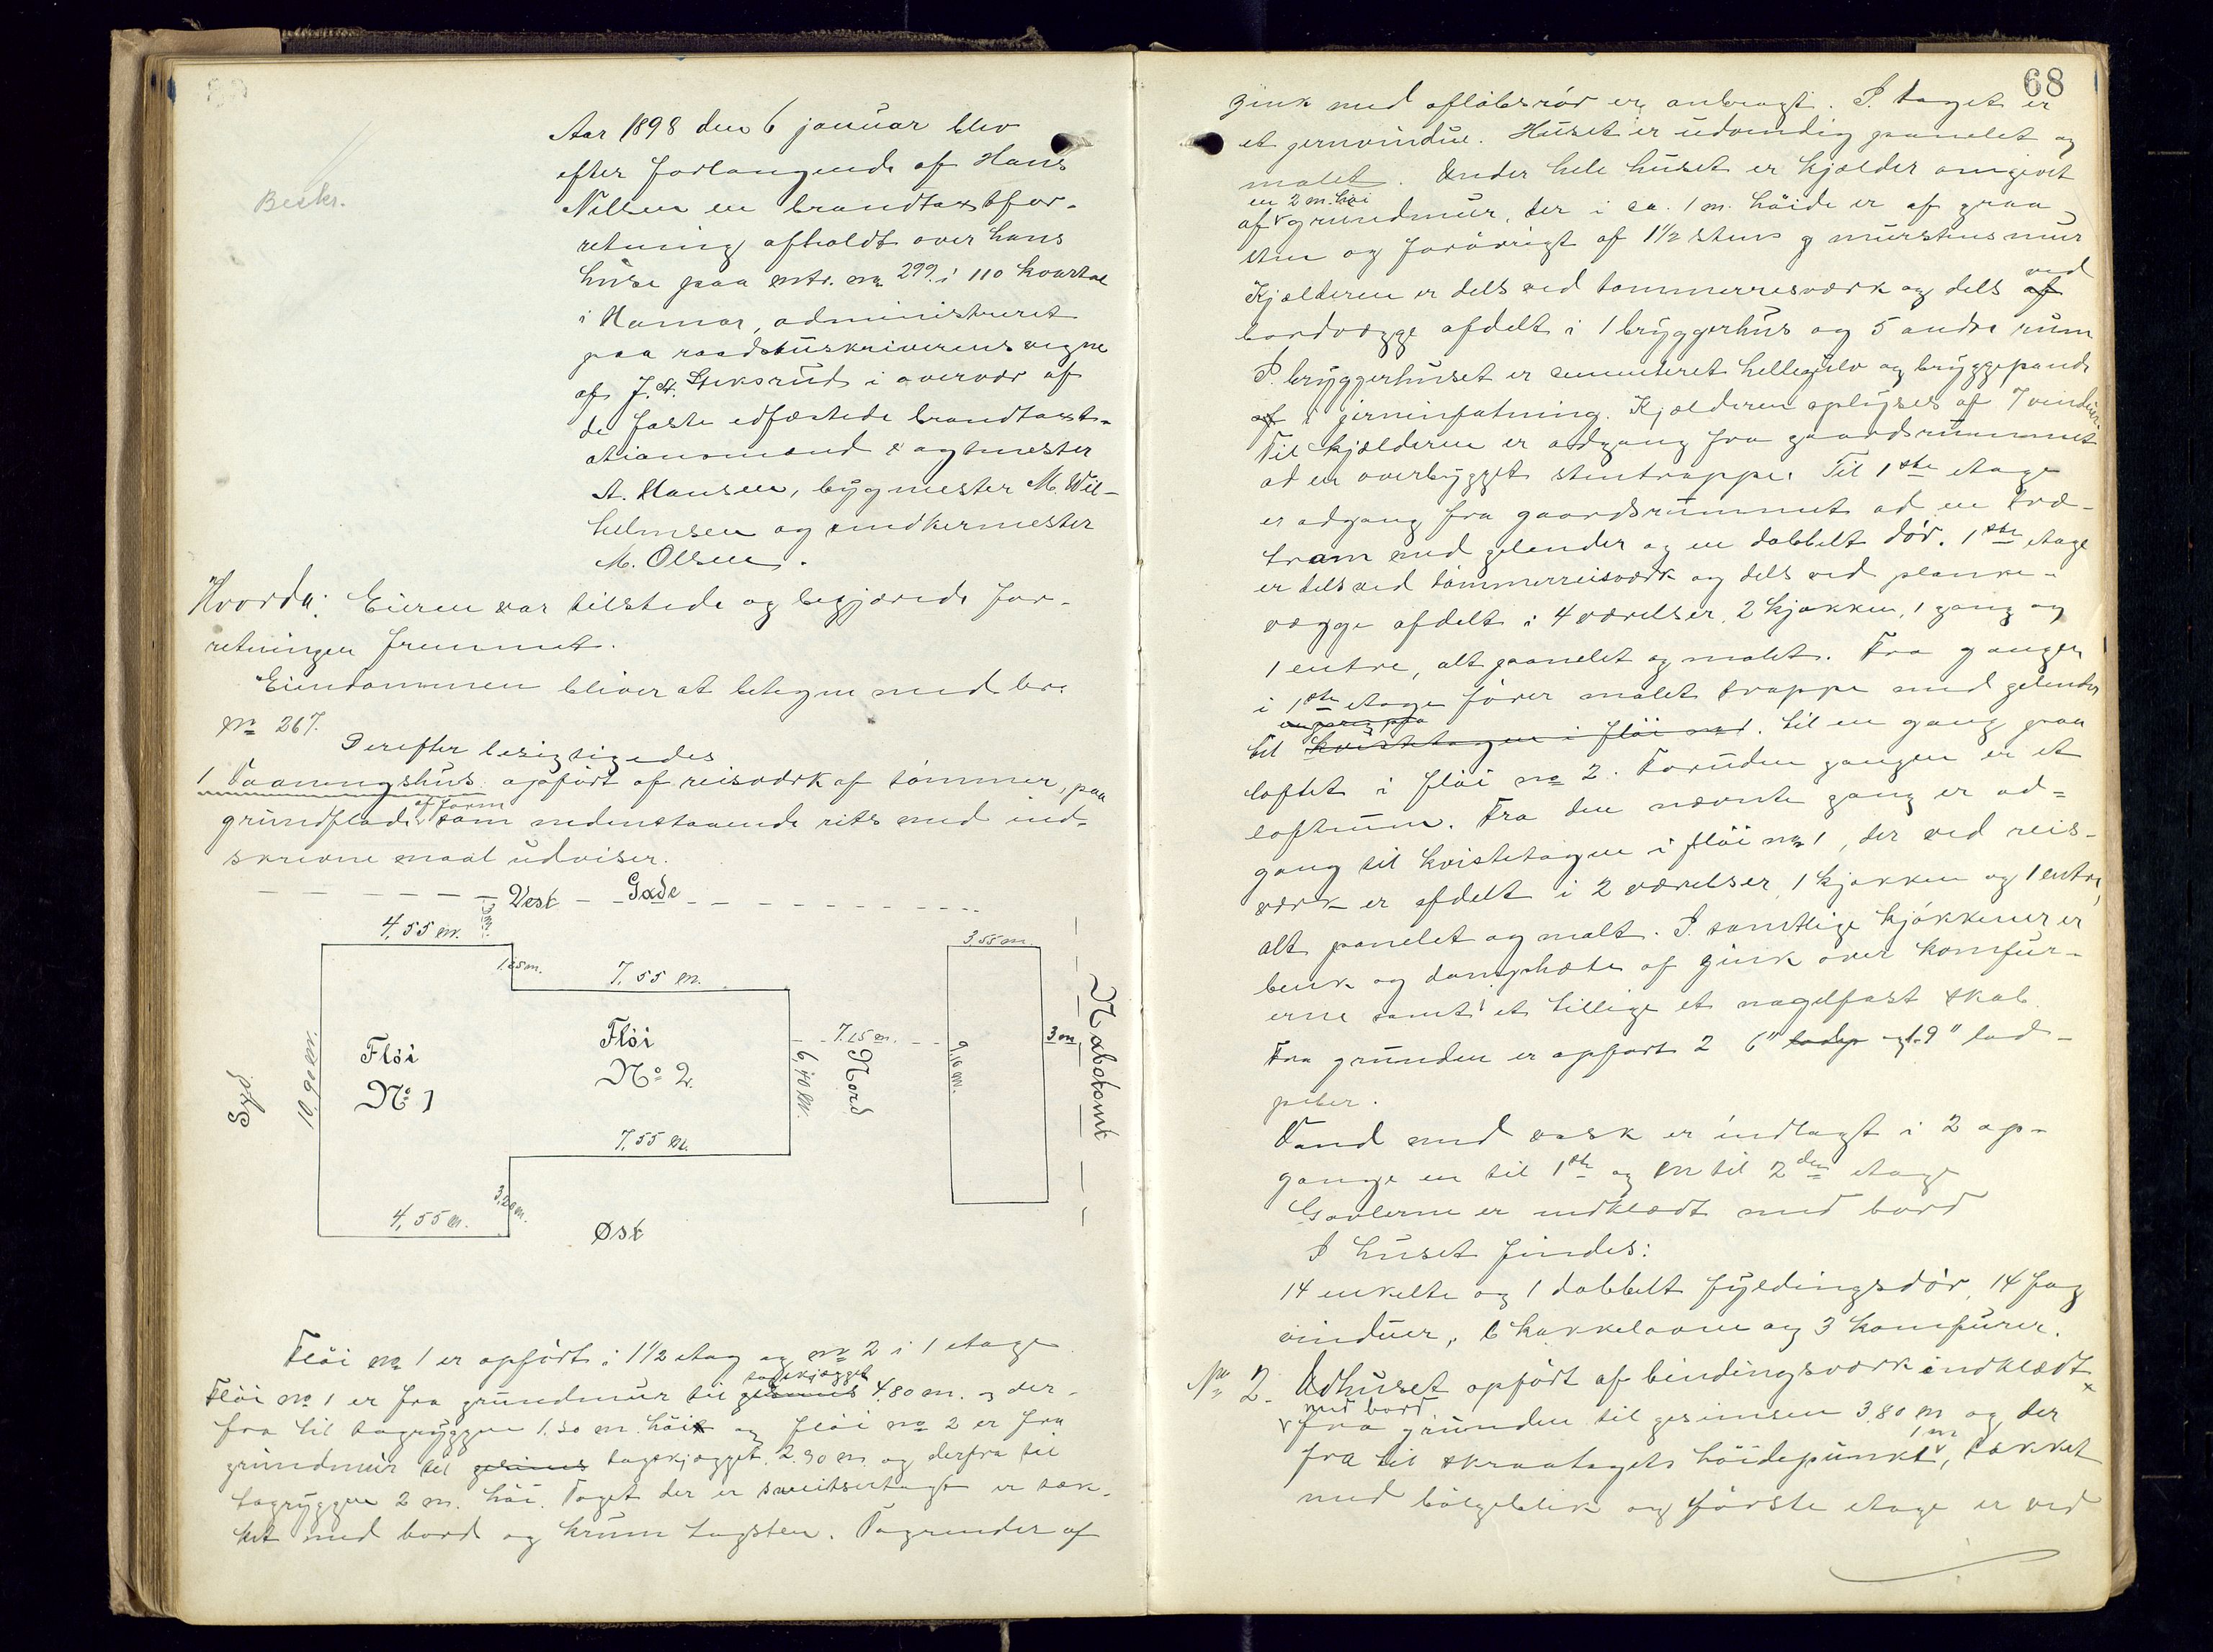 Beskr.
Aar 1898 den 6 januar blev
efter forlangende af Hans
Nilsen en brandtaxtfor-
retning afholdt over hans
huse paa mtr. no 299 i 110 kvartal
i Hamar, administreret
paa raadstuskriverens vegne
af J. A. Steksrud i overvær af
de faste edfæstede brandtaxt-
ationsmænd
A. Hansen, bygmester M. Wil-
helmsen og smedkermester
M. Olsen.
Hvorda: Eieren var tilstede og begjærede for-
retningen fremmet.
Eiendommen bliver at betegne med br.
No 267.
Derefter besigtigedes
1 Vaaningshus opført af reisværk af tømmer, paa
grundflade af form som nedenstaaende rits med ind-
skrevne maal udviser.
Vest Gade
4,55 m.
3,55 m.
1.25 m.
7,55 m.
Fløi
No 1
Fløi
No 2.
7.25 m.
Nord
6,40 m.
9,16 m.
3 m
Nabotomt
Syd
10,90 m.
7,55 m.
3,20 m.
4,55 m.
Øst
Fløi no 1 er opført i 1½ etag og no 2 i 1 etage
Fløi no 1 er fra grundmur til gesims tagskjægget 4.80 m. og der-
fra til tagryggen 1.30 m. høit og fløi no 2 er fra
grundmur til gesims tagskjægget 2.90 m og derfra til
tagryggen 2 m. høi. Taget der er sveitsertagt er tæk-
ket med bord og krum tagsten. Tagrender af
68
zink med afløbsrør er anbragt. I taget er
et jernvindue. Huset er udvendig panelet og
malet. Under hele huset er kjælder omgivet
af en 2 m. høi grundmur, der i ca. 1 m. høide er af graa-
sten og forøvrigt af 1½ stens g murstensmur
Kjælderen er dels ved tømmerresværk og dels af ved
bordvægge afdelt i 1 bryggerhus og 5 andre rum
I bryggerhuset er cementeret hellegulv og bryggepande
af i jerninfatning. Kjælderen oplyses af 7 vinduer
Til kjælderen er adgang fra gaardsrummet
ad en overbygget stentrappe. Til 1ste etage
er adgang fra gaardsrummet ad en træ-
tram med gelender og en dobbelt dør. 1ste etage
er dels ved tømmerreisværk og dels ved planke-
vægge afdelt i 4 værelser, 2 kjøkken, 1 gang og
1 entre, alt panelet og malet. Fra gangen
i 1ste etage fører malet trappe med gelender
til kvistetagen i fløi no 1. til en gang paa
loftet i fløi no 2. Foruden gangen er et
loftrum. Fra den nævnte gang er ad-
gang til kvistetagen i fløi no 1, der ved reis-
værk er afdelt i 2 værelser, 1 kjøkken og 1 entre,
alt panelet og malt. I samtlige kjøkkener er
benk og damphætte af zink over komfur-
erne samt et tillige et nagelfast skab
Fra grunden er opført 2 6" lodp og 1. 9" lod-
piber.
Vand med vask er indlagt i 2 op-
gange en til 1ste og en til 2den etage
Gavlerne er indklædt med bord
I huset findes:
14 enkelte og 1 dobbelt fyldingsdør, 14 fag
vinduer, 6 kakkelovne og 3 komfurer.
No 2. Udhuset opført af bindingsværk indklædt
med bord
fra grunden til gesimsen 3.80 m og der
fra til skraatagets høidepunkt 1 m, tækket
med bølgeblik og første etage er ved